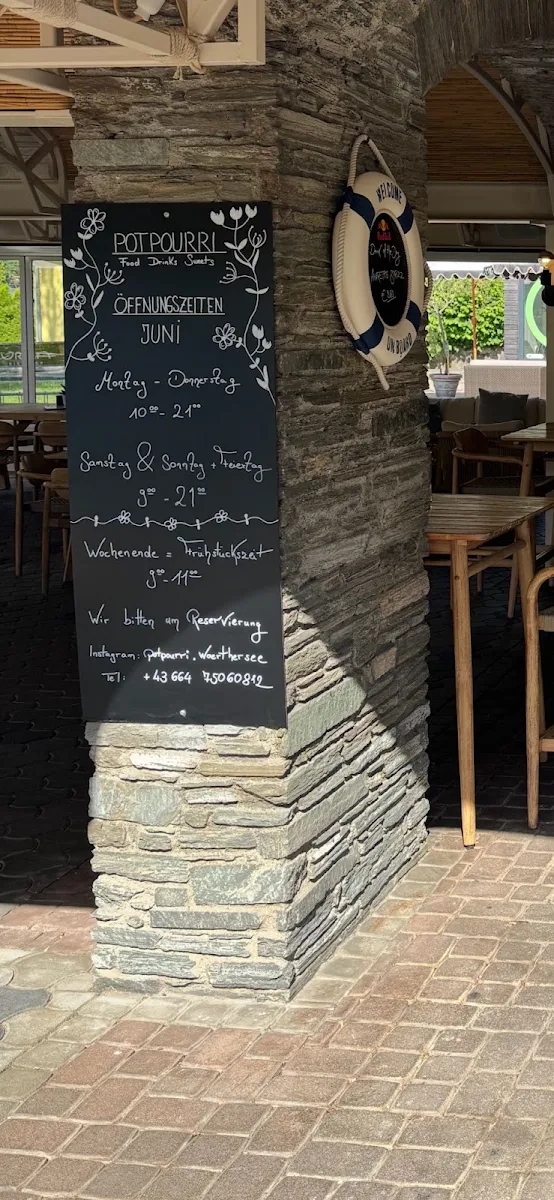 POTPOURRI
Food Drinks Sweets
ÖFFNUNGSZEITEN
JUNI
Montag - Donnerstag
10⁰⁰ - 21⁰⁰
Samstag & Sonntag + Feiertag
9⁰⁰ - 21⁰⁰
Wochenende = Frühstückszeit
9⁰⁰ - 11⁰⁰
Wir bitten um Reservierung
Instagram: potpourri.woerthersee
Tel: +43 664 75060812
WELCOME
Red Bull
ON BOARD